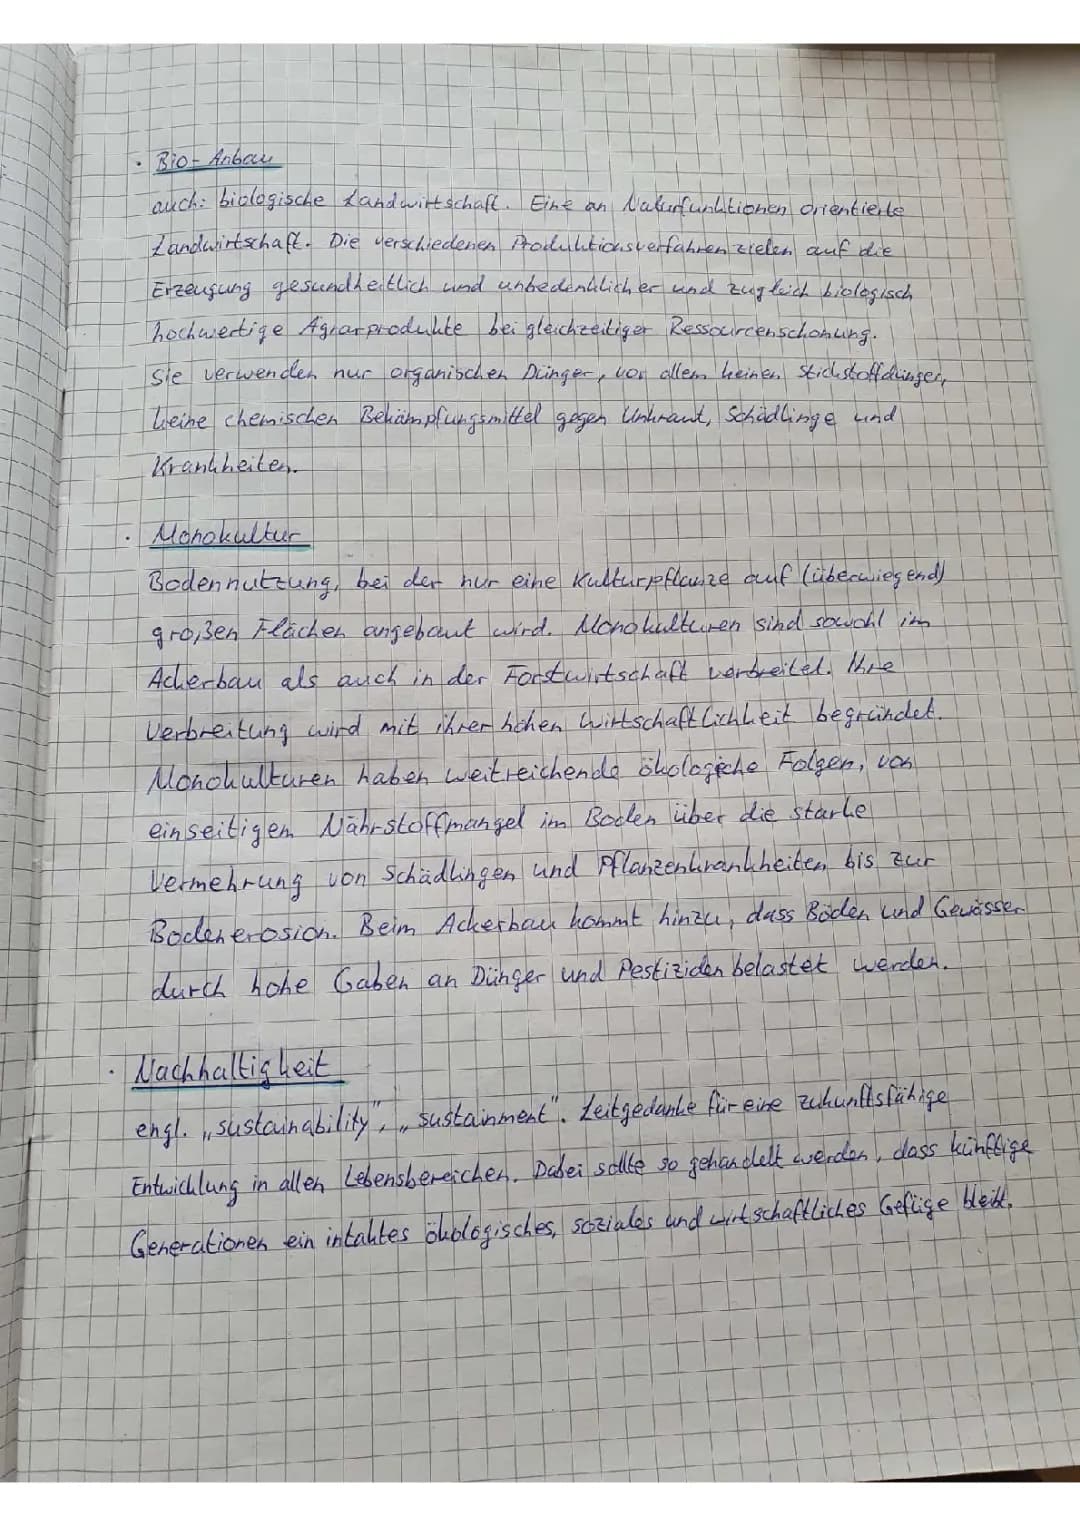 · Bio-Anbau
auch: biologische Landwirtschaft. Eine an Naturfunktionen orientierte
Landwirtschaft. Die verschiedenen Produktionsverfahren zielen auf die
Erzeugung gesundheitlich und unbedenklicher und zugleich biologisch
hochwertige Agrarprodukte bei gleichzeitiger Ressourcenschonung.
Sie verwenden nur organischen Dünger, vor allem keinen Stickstoffdünger,
keine chemischen Bekämpfungsmittel gegen Unkraut, Schädlinge und
Krankheiten.
· Monokultur
Bodennutzung, bei der nur eine Kulturpflanze auf (überwiegend)
großen Flächen angebaut wird. Monokulturen sind sowohl im
Ackerbau als auch in der Forstwirtschaft verbreitet. Ihre
Verbreitung wird mit ihrer hohen Wirtschaftlichkeit begründet.
Monokulturen haben weitreichende ökologische Folgen, von
einseitigem Nährstoffmangel im Boden über die starke
Vermehrung von Schädlingen und Pflanzenkrankheiten bis zur
Bodenerosion. Beim Ackerbau kommt hinzu, dass Böden und Gewässer
durch hohe Gaben an Dünger und Pestiziden belastet werden.
· Nachhaltigkeit
engl. „sustainability", „sustainment". Leitgedanke für eine zukunftsfähige
Entwicklung in allen Lebensbereichen. Dabei sollte so gehandelt werden, dass künftige
Generationen ein intaktes ökologisches, soziales und wirtschaftliches Gefüge bleibt.